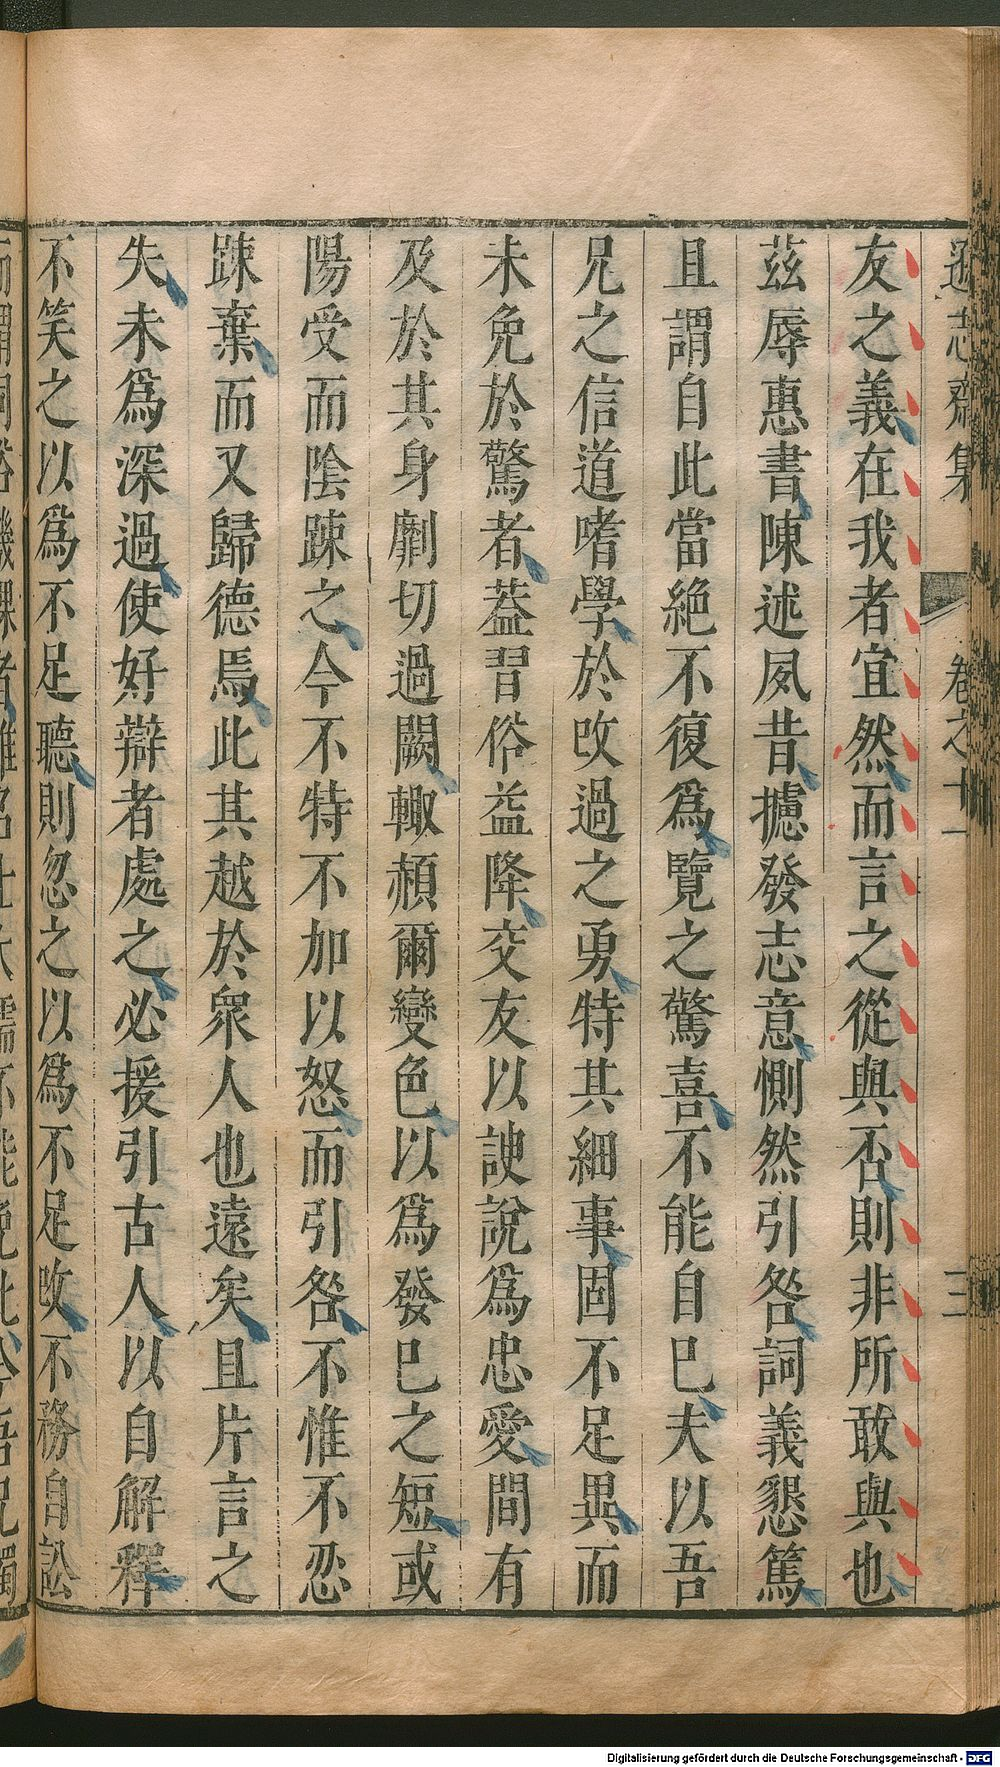 遜志齋集
卷之十一
三
友之義在我者宜然而言之從與否則非所敢與也
茲辱惠書陳述夙昔攄發志意惻然引咎詞義懇篤
且謂自此當絶不復爲覽之驚喜不能自已夫以吾
兄之信道嗜學於攺過之勇特其細事固不足異而
未免於驚者葢習俗益降交友以諛說爲忠愛間有
及於其身劘切過闕輙頳爾變色以爲發已之短或
陽受而陰踈之今不特不加以怒而引咎不惟不忍
踈棄而又歸德焉此其越於衆人也遠矣且片言之
失未爲深過使好辯者處之必援引古人以自解釋
不笑之以爲不足聽則忽之以爲不足攺不務自訟
Digitalisierung gefördert durch die Deutsche Forschungsgemeinschaft - DFG